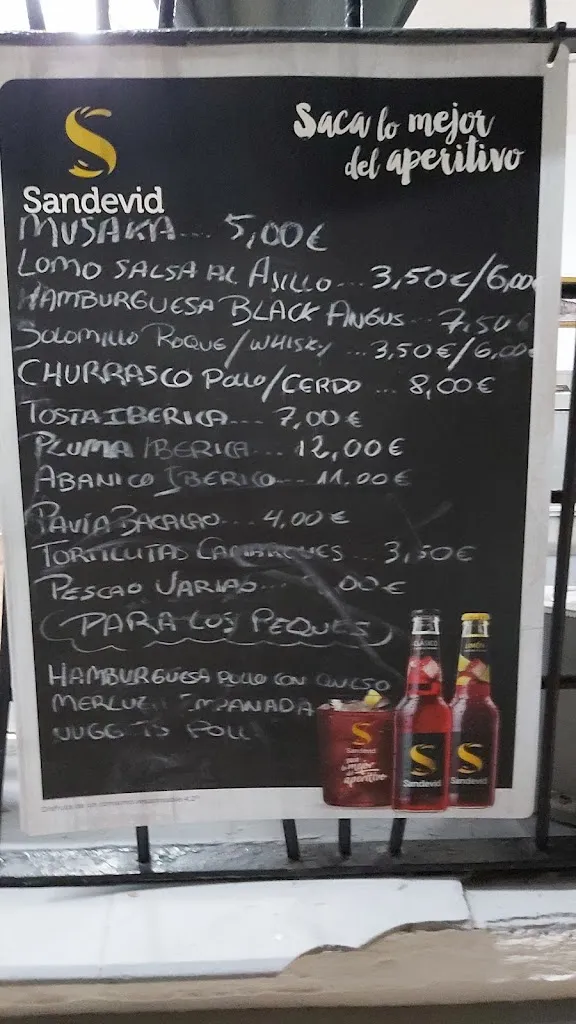 Saca lo mejor
del aperitivo
S
Sandevid
MUSAKA... 5,00€
LOMO SALSA AL AJILLO... 3,50€/6,00
HAMBURGUESA BLACK ANGUS.. 7,50€
SOLOMILLO ROQUE/WHISKY... 3,50€/6,00€
CHURRASCO POLLO/CERDO... 8,00€
TOSTA IBERICA... 7,00€
PLUMA IBERICA... 12,00€
ABANICO IBERICO... 11,00€
PAVIA BACALAO... 4,00€
TORTILLITAS CAMARONES... 3,50€
PESCAO VARIAO... ,00€
(PARA LOS PEQUES)
HAMBURGUESA POLLO CON QUESO
MERLUZ EMPANADA
NUGG TS POLL
CLÁSICO
LIMÓN
S
Sandevid
lo mejor
aperitivo
S
Sandevid
S
Sandevid